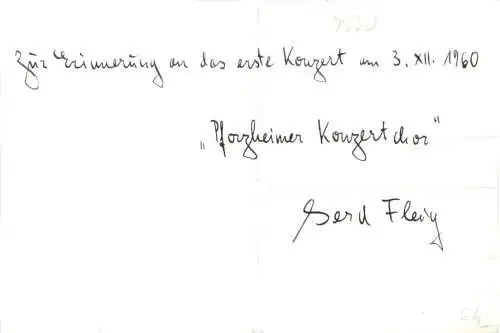 Zur Erinnerung an das erste Konzert am 3. XII. 1960
„Pforzheimer Konzertchor"
Gerd Fleig